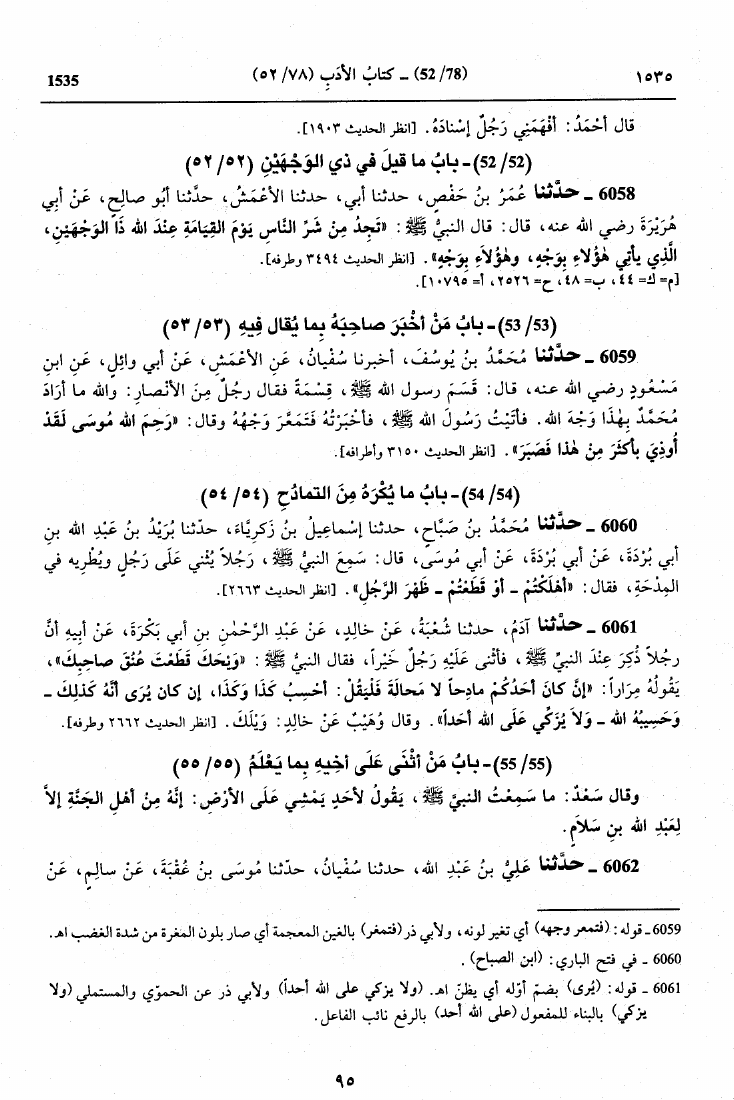 ١٥٣٥ (52/78) ـ كتابُ الأدَبِ (٥٢/٧٨) 1535
قال أحْمَدُ: أفْهَمَنِي رَجُلٌ إسْنادَهُ. [انظر الحديث ١٩٠٣].
(52/52)- بابُ ما قيلَ في ذي الوَجْهَيْنِ (٥٢/٥٢)
6058 ـ حدَّثنا عُمَرُ بنُ حَفْصٍ، حدثنا أبي، حدثنا الأعْمَشُ، حدَّثنا أبُو صالِحٍ، عَنْ أبِي
هُرَيْرَةَ رضي الله عنه، قال: قال النبيُّ ﷺ: «تَجِدُ مِنْ شَرِّ النَّاسِ يَوْمَ القِيَامَةِ عِنْدَ الله ذَا الوَجْهَيْنِ،
الَّذِي يأتِي هٰؤُلاءِ بِوَجْهٍ، وهٰؤُلاَءِ بِوَجْهٍ». [انظر الحديث ٣٤٩٤ وطرفه].
[م= ك= ٤٤، ب= ٤٨، ح= ٢٥٢٦، أ= ١٠٧٩٥].
(53/53)- بابُ مَنْ أخْبَرَ صاحِبَهُ بِما يُقال فِيهِ (٥٣/٥٣)
6059 ـ حدَّثنا مُحَمَّدُ بنُ يُوسُفَ، أخبرنا سُفْيانُ، عَنِ الأعْمَشِ، عَنْ أبي وائِلٍ، عَنِ ابنِ
مَسْعُودٍ رضي الله عنه، قال: قَسَمَ رسول الله ﷺ، قِسْمَةً فقال رجُلٌ مِنَ الأنْصارِ: والله ما أرَادَ
مُحَمَّدٌ بِهٰذَا وَجْهَ الله. فأتَيْتُ رَسُولَ الله ﷺ، فأخْبَرْتُهُ فَتَمَعَّرَ وَجْهُهُ وقال: «رَحِمَ الله مُوسَى لَقَدْ
أُوذِيَ بأكْثَرَ مِنْ هٰذا فَصَبَرَ». [انظر الحديث ٣١٥٠ وأطرافه].
(54/54)- بابُ ما يُكْرَهُ مِنَ التمادُحِ (٥٤/٥٤)
6060 ـ حدَّثنا مُحَمَّدُ بنُ صَبَّاحٍ، حدثنا إسْماعِيلُ بنُ زكَرِيَّاءَ، حدّثنا بُرَيْدُ بنُ عَبْدِ الله بنِ
أبي بُرْدَةَ، عَنْ أبي بُرْدَةَ، عَنْ أبي مُوسَى، قال: سَمِعَ النبيُّ ﷺ، رَجُلاً يُثْنِي عَلَى رَجُلٍ ويُطْرِيه في
المِدْحَةِ، فقال: «أهْلَكْتُمْ ـ أوْ قَطَعْتُمْ ـ ظَهْرَ الرَّجُلِ». [انظر الحديث ٢٦٦٣].
6061 ـ حدَّثنا آدَمُ، حدثنا شُعْبَةُ، عَنْ خالِدٍ، عَنْ عَبْدِ الرَّحْمٰنِ بنِ أبي بَكْرَةَ، عَنْ أبِيهِ أنَّ
رجُلاً ذُكِرَ عِنْدَ النبيِّ ﷺ، فأثْنَى عَلَيْهِ رَجُلٌ خَيْراً، فقال النبيُّ ﷺ: «وَيْحَكَ قَطَعْتَ عُنُقَ صاحِبِكَ»،
يَقُولُهُ مِرَاراً: «إنْ كانَ أحَدُكُمْ مادِحاً لا مَحالَةَ فَلْيَقُلْ: أحْسِبُ كَذَا وَكَذَا، إن كان يُرَى أنَّهُ كَذلِكَ ـ
وَحَسِيبُهُ الله ـ وَلاَ يُزَكِّي عَلَى الله أحَداً». وقال وُهَيْبٌ عَنْ خالِدٍ: وَيْلَكَ. [انظر الحديث ٢٦٦٢ وطرفه].
(55/55)- بابُ مَنْ أثْنَى عَلَى أخِيهِ بِما يَعْلَمُ (٥٥/٥٥)
وقال سَعْدٌ: ما سَمِعْتُ النبيَّ ﷺ، يَقُولُ لأحَدٍ يَمْشِي عَلَى الأرْضِ: إنَّهُ مِنْ أهْلِ الجَنَّةِ إلاَّ
لِعَبْدِ الله بنِ سَلاَمٍ.
6062 ـ حدَّثنا عَلِيُّ بنُ عَبْدِ الله، حدثنا سُفْيانُ، حدّثنا مُوسَى بنُ عُقْبَةَ، عَنْ سالِمٍ، عَنْ
6059ـ قوله: (فتمعر وجهه) أي تغير لونه، ولأبي ذر (فتمغر) بالغين المعجمة أي صار بلون المغرة من شدة الغضب اهـ.
6060 ـ في فتح الباري: (ابن الصباح).
6061 ـ قوله: (يُرى) بضمّ أوّله أي يظنّ اهـ. (ولا يزكي على الله أحداً) ولأبي ذر عن الحمّوي والمستملي (ولا
يزكي) بالبناء للمفعول (على الله أحد) بالرفع نائب الفاعل.
٩٥